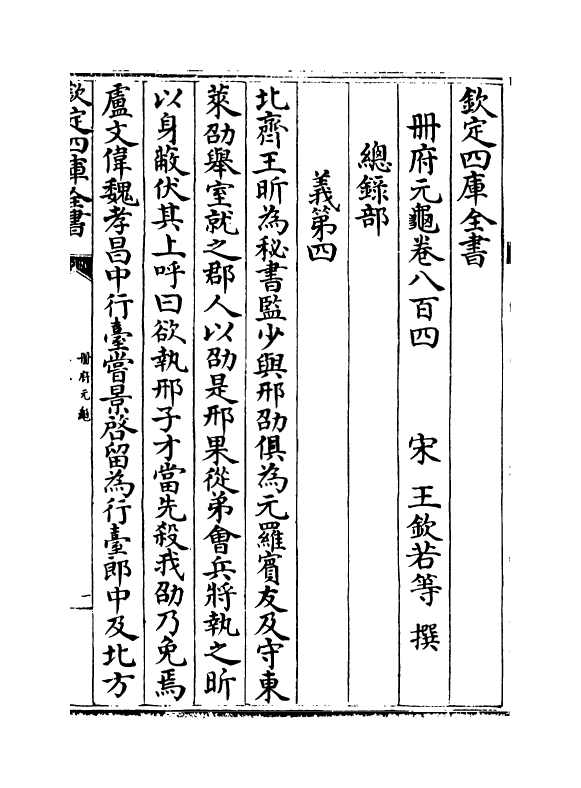 欽定四庫全書
冊府元龜卷八百四　宋　王欽若等　撰
總錄部
義第四
北齊王昕為秘書監少與邢劭俱為元羅賓友及守東
萊劭舉室就之郡人以劭是邢果從弟會兵將執之昕
以身蔽伏其上呼曰欲執邢子才當先殺我劭乃免焉
盧文偉魏孝昌中行臺嘗景啓留為行臺郎中及北方
欽定四庫全書
冊府元龜
一